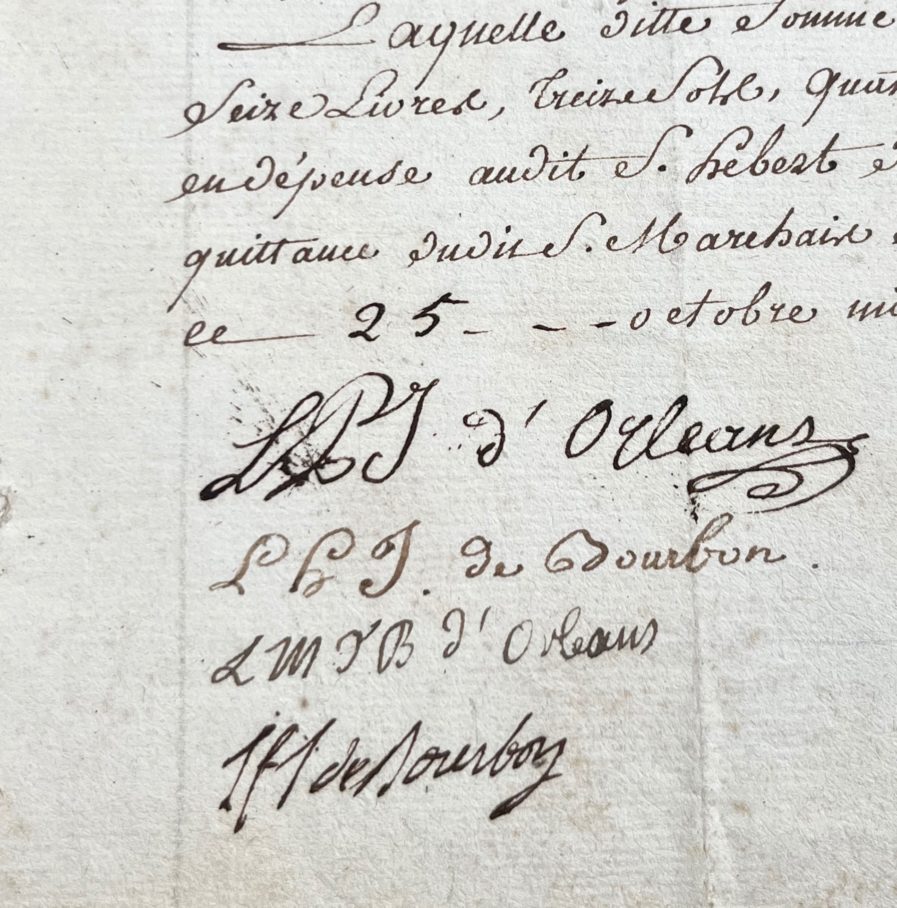 Laquelle ditte Somme
Seize Livres, Treize Sols, Quat
en dépense audit S. hébert
quittance dudit S. Marchais
ce 25 - - - octobre mi
LPJ d'Orleans
LHJ. de Bourbon.
LMTB d'Orleans
de Bourbon